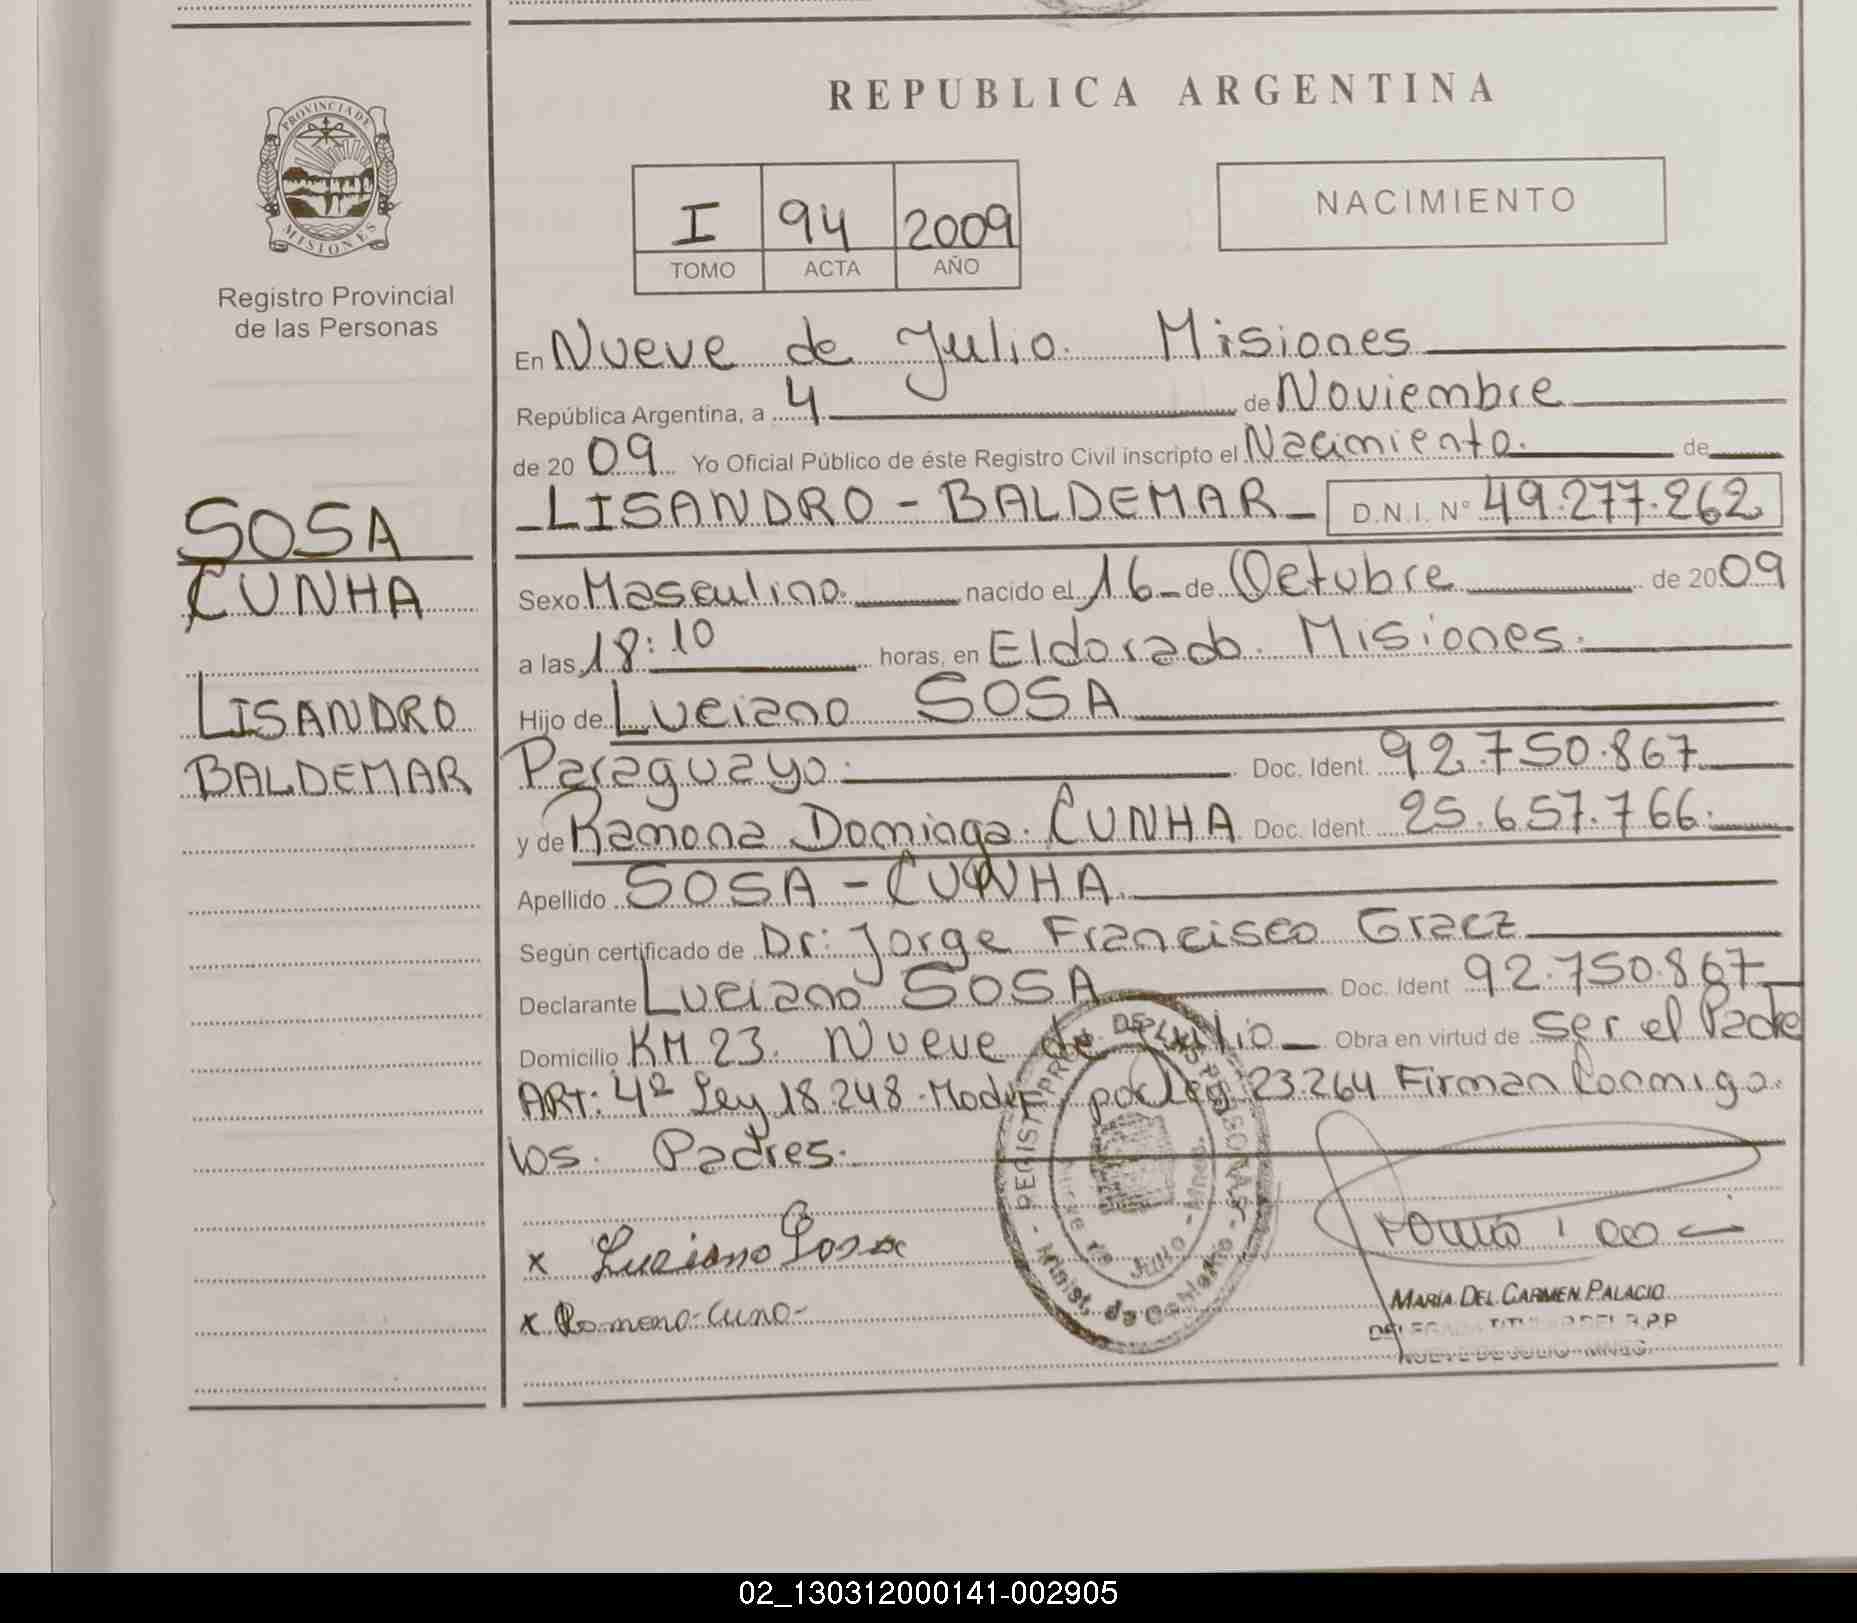 REPUBLICA ARGENTINA
PROVINCIA DE
MISIONES
Registro Provincial
de las Personas
I 94 2009
TOMO ACTA AÑO
NACIMIENTO
SOSA
CUNHA
LISANDRO
BALDEMAR
En Nueve de Julio. Misiones
República Argentina, a 4 de Noviembre
de 2009 Yo Oficial Público de éste Registro Civil inscripto el Nacimiento. de
LISANDRO - BALDEMAR D.N.I. Nº 49.277.262
Sexo Masculino. nacido el 16 de Octubre de 2009
a las 18:10 horas, en Eldorado. Misiones.
Hijo de Luciano SOSA
Paraguayo. Doc. Ident. 92.750.867
y de Ramona Dominga. CUNHA Doc. Ident. 25.657.766.
Apellido SOSA - CUNHA.
Según certificado de Dr: Jorge Francisco Gracz
Declarante Luciano SOSA Doc. Ident 92.750.867
Domicilio KM 23. Nueve de Julio Obra en virtud de ser el Padre
ART: 4º Ley 18.248. Modif. por Ley 23.264 Firman Conmigo.
los. Padres.
x Luciano Sosa
x Romona-Cuna-
MARIA DEL CARMEN PALACIO
NUEVE DE JULIO - MNES.
02_130312000141-002905